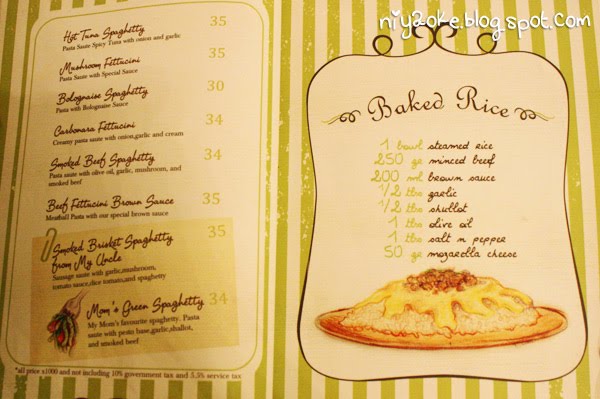 niy2oke.blog.spot.com
Hot Tuna Spaghetty 35
Pasta Saute Spicy Tuna with onion and garlic
Mushroom Fettucini 35
Pasta Saute with Special Sauce
Bolognaise Spaghetty 30
Pasta with Bolognaise Sauce
Carbonara Fettucini 34
Creamy pasta saute with onion,garlic and cream
Smoked Beef Spaghetty 34
Pasta saute with olive oil, garlic, mushroom, and
smoked beef
Beef Fettucini Brown Sauce 35
Meatball Pasta with our special brown sauce
Smoked Brisket Spaghetty 35
from My Uncle
Sausage saute with garlic,mushroom,
tomato sauce,dice tomato,and spaghetty
Mom's Green Spaghetty 34
My Mom's favourite spaghetty. Pasta
saute with pesto base,garlic,shallot,
and smoked beef
*all price x1000 and not including 10% government tax and 5.5% service tax
Baked Rice
1 bowl steamed rice
250 gr minced beef
200 ml brown sauce
1/2 tbs garlic
1/2 tbs shallot
1 tbs olive oil
1 tbs salt n pepper
50 gr mozarella cheese